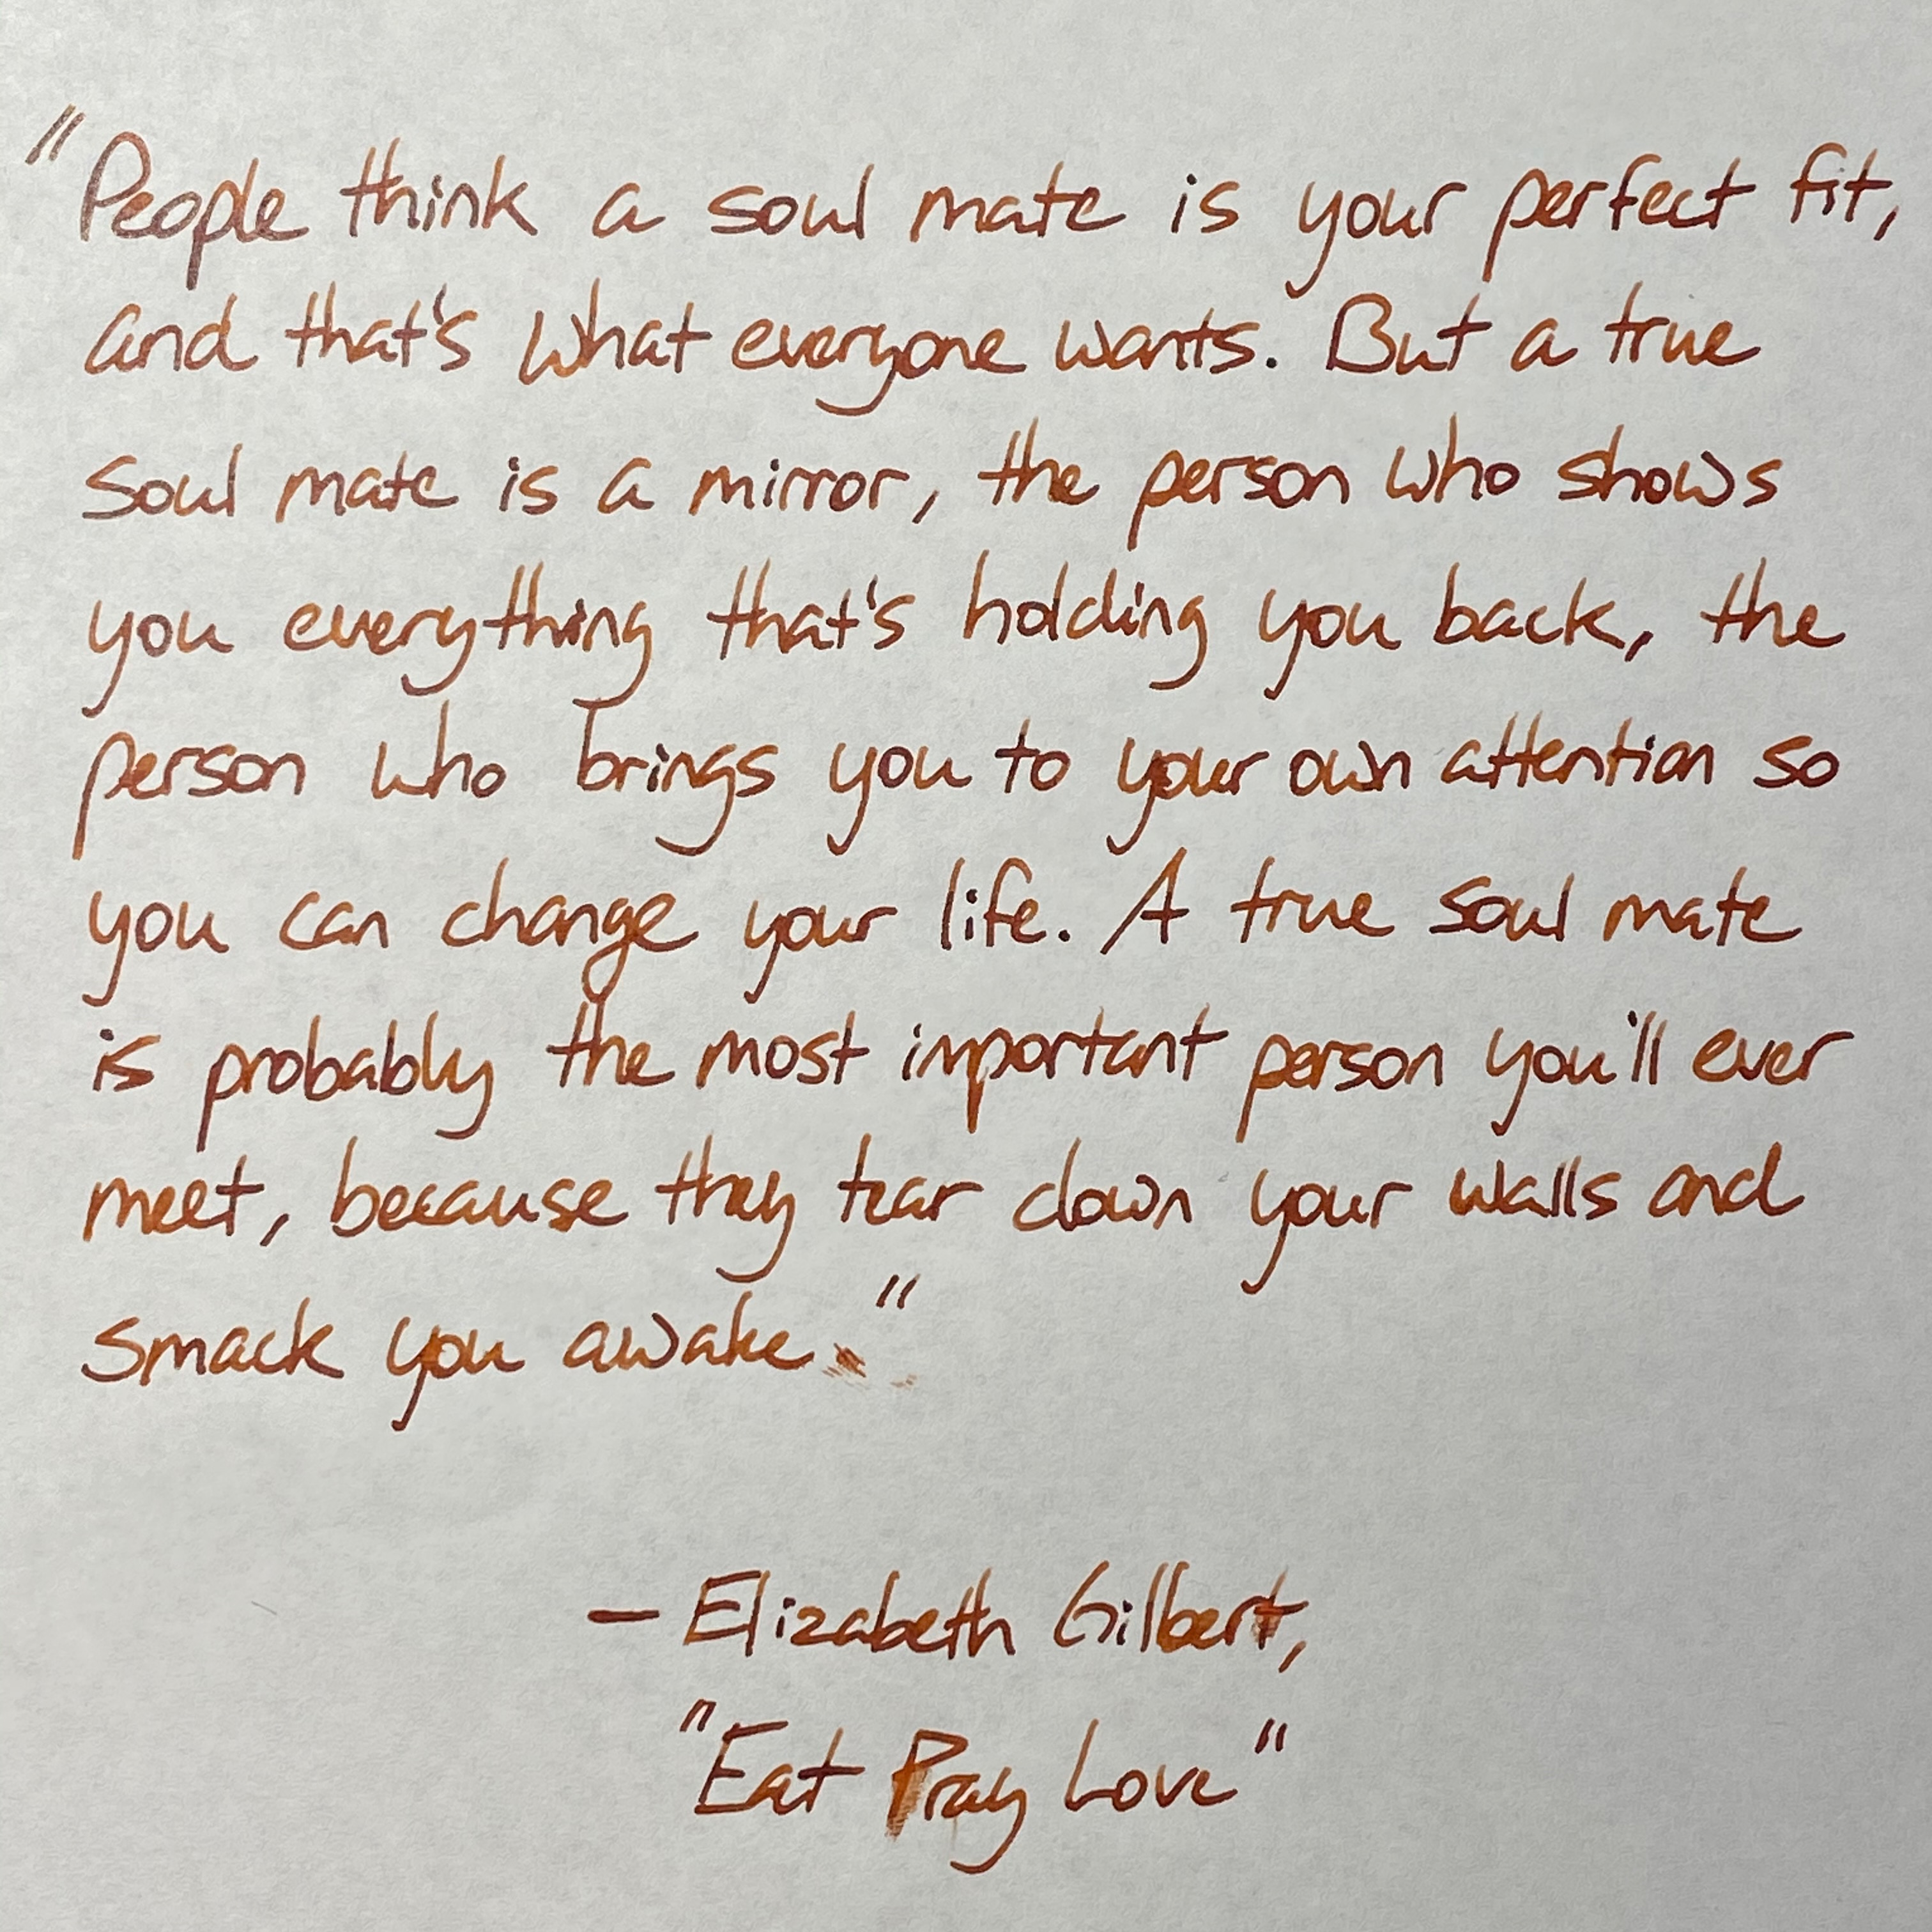 "People think a soul mate is your perfect fit,
and that's what everyone wants. But a true
soul mate is a mirror, the person who shows
you everything that's holding you back, the
person who brings you to your own attention so
you can change your life. A true soul mate
is probably the most important person you'll ever
meet, because they tear down your walls and
smack you awake."
— Elizabeth Gilbert,
"Eat Pray Love"